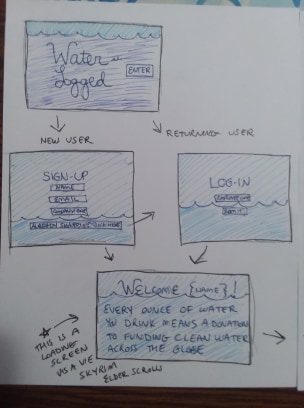 Water
Logged
ENTER
NEW USER
RETURNING USER
SIGN-UP
NAME
EMAIL
LOG-IN
WELCOME {NAME}!
EVERY OUNCE OF WATER
YOU DRINK MEANS A DONATION
TO FUNDING CLEAN WATER
ACROSS THE GLOBE
THIS IS A
LOADING
SCREEN
VIS A VIE
SKYRIM
ELDER SCROLLS